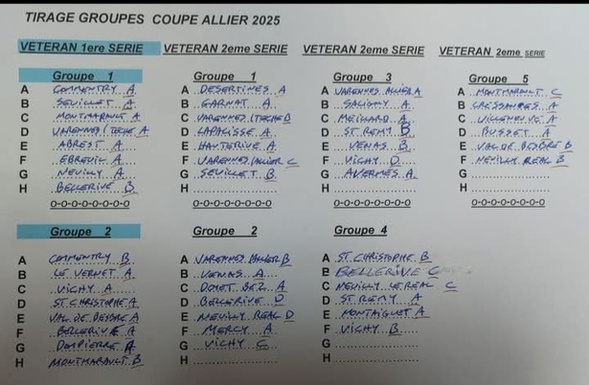 TIRAGE GROUPES COUPE ALLIER 2025
VETERAN 1ere SERIE
Groupe 1
A COMMENTRY A
B SEUILLET A
C MONTMARAULT A
D VARENNES/TECHE A
E ABREST A
F EBREUIL A
G NEUILLY A
H BELLERIVE B
O-O-O-O-O-O-O-O
Groupe 2
A COMMENTRY B
B LE VERNET A
C VICHY A
D ST CHRISTOPHE A
E VAL DE BESBRE A
F BELLERIVE A
G DOMPIERRE A
H MONTMARAULT B
VETERAN 2eme SERIE
Groupe 1
A DESERTINES A
B GARNAT A
C VARENNES/TECHE B
D LAPALISSE A
E HAUTERIVE A
F VARENNES/ALLIER C
G SEUILLET B
H
O-O-O-O-O-O-O-O
Groupe 2
A VARENNES ALLIER B
B VENAS A
C DOYET BEZ. A
D BELLERIVE D
E NEUILLY REAL D
F MERCY A
G VICHY C
H
VETERAN 2eme SERIE
Groupe 3
A VARENNES ALLIER A
B SALIGNY A
C MEILLARD A
D ST REMY B
E VENAS B
F VICHY D
G AVERMES A
H
O-O-O-O-O-O-O-O
Groupe 4
A ST CHRISTOPHE B
B BELLERIVE C
C NEUILLY LE REAL C
D ST REMY A
E MONTAIGUET A
F VICHY B
G
H
VETERAN 2eme SERIE
Groupe 5
A MONTMARAULT C
B CRESSANGES A
C VILLENEUVE A
D BUSSET A
E VAL DE BESBRE B
F NEUILLY REAL B
G
H
O-O-O-O-O-O-O-O